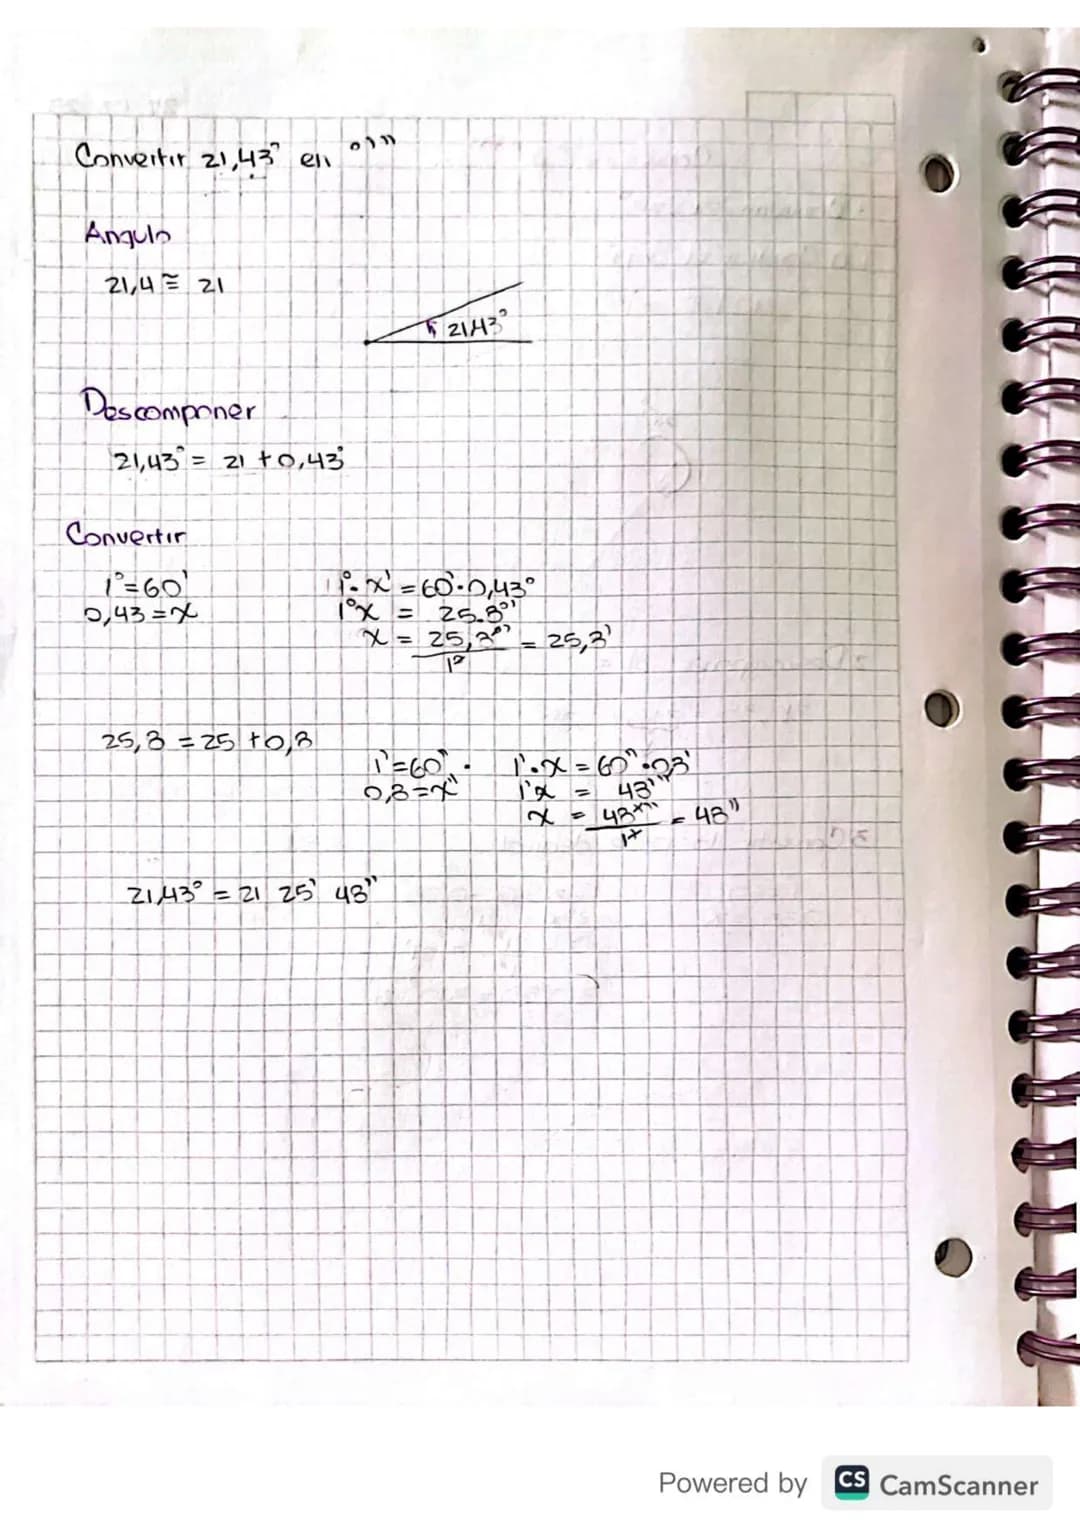 Convertir 21,43° en °'"
Angulo
21,4 ≅ 21
21,43°
Descomponer
21,43° = 21 + 0,43°
Convertir
1° = 60'
0,43 = x
1°. x' = 60'. 0,43°
1°x = 25.8°'
x = 25,8°' = 25,8'
1°
25,8 = 25 + 0,8
1' = 60"
0,8 = x"
1'. x = 60". 0,8'
1'x = 48'"
x = 48'" = 48"
1'
21,43° = 21 25' 48"
Powered by CS CamScanner